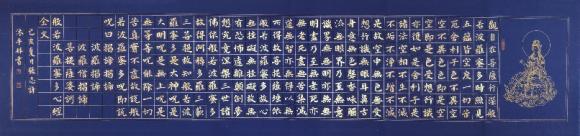 觀自在菩薩行深般
若波羅蜜多時照見
五蘊皆空度一切苦
厄舍利子色不異空
空不異色色即是空
空即是色受想行識
亦復如是舍利子是
諸法空相不生不滅
不垢不淨不增不減
是故空中無色無受
想行識無眼耳鼻舌
身意無色聲香味觸
法無眼界乃至無意
識界無無明亦無無
明盡乃至無老死亦
無老死盡無苦集滅
道無智亦無得以無
所得故菩提薩埵依
般若波羅蜜多故心
無罣礙無罣礙故無
有恐怖遠離顛倒夢
想究竟涅槃三世諸
佛依般若波羅蜜多
故得阿耨多羅三藐
三菩提故知般若波
羅蜜多是大神咒是
大明咒是無上咒是
無等等咒能除一切
苦真實不虛故說般
若波羅蜜多咒即說
咒曰揭諦揭諦
波羅揭諦
波羅僧揭諦
菩提薩婆訶
般若波羅蜜多心經
全文
己亥夏月張志
沐手拜書